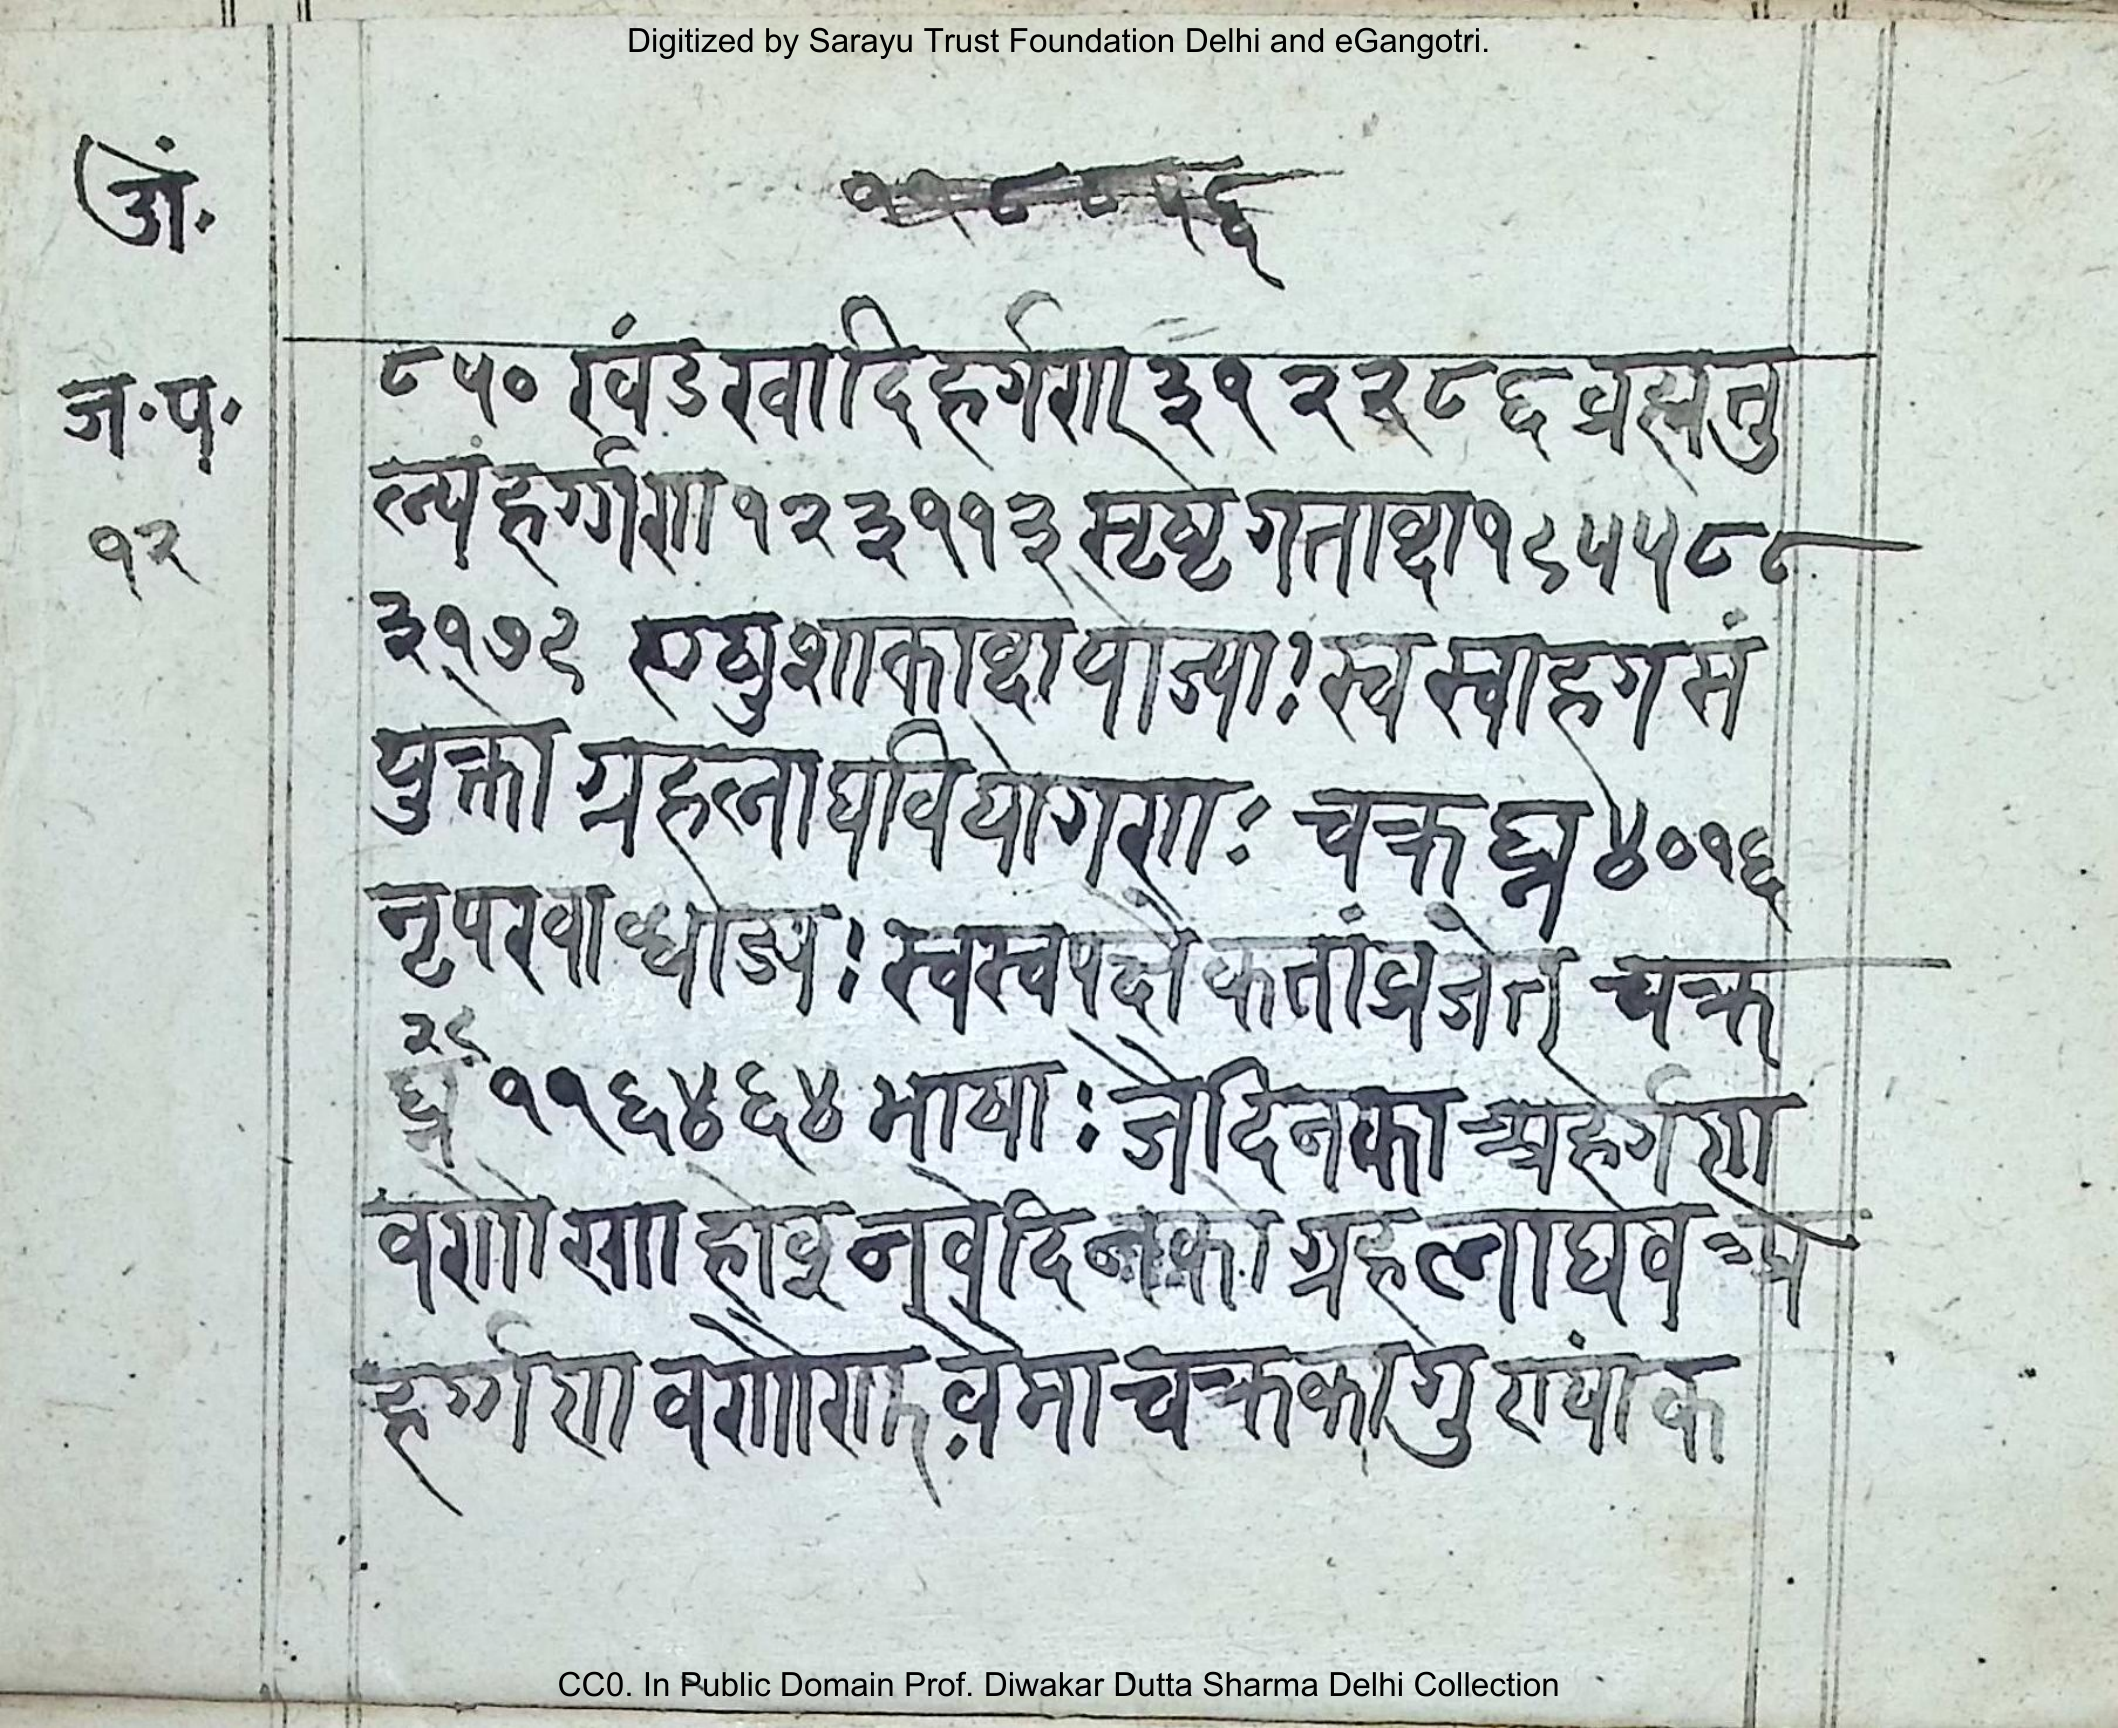 Digitized by Sarayu Trust Foundation Delhi and eGangotri.
अं.
ज.प.
१२
८५० खंडखादिहर्गण ३१२२८६ व्रह्मतु
ल्यं हर्ग्गण १२३११३ सृष्टे गताब्दा १९५५८८
३१७९ शाकाब्दा योज्याः स्व स्वाहग सं
युक्तो ग्रहलाघवियोगणः चक्रघ्न ४०१६
नृपखाब्ध्योज्यः स्वस्वपक्षैकतांव्रजेत् चक्र
२९
घ्न ११६४६४ भाषाः जेदिनका अहर्गण
वणोणा दिनको ग्रहलाघव अ
हर्ग्गण वणोणा वेमा चक्रका गुण्यांक
CC0. In Public Domain Prof. Diwakar Dutta Sharma Delhi Collection